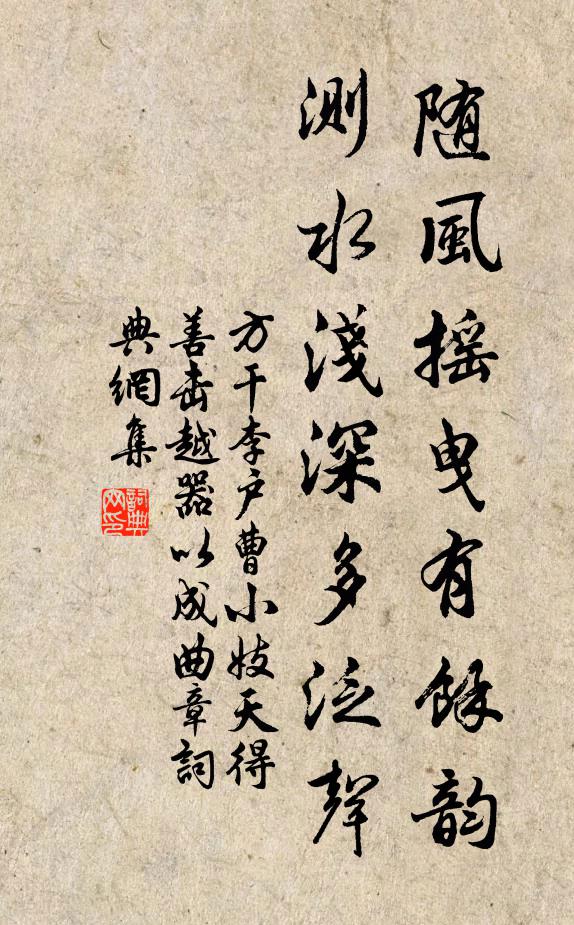 随風摇曳有餘韵
測水淺深多泛聲
方干李户曹小妓天得
善击越器以成曲章詞
典網集
詞典网印